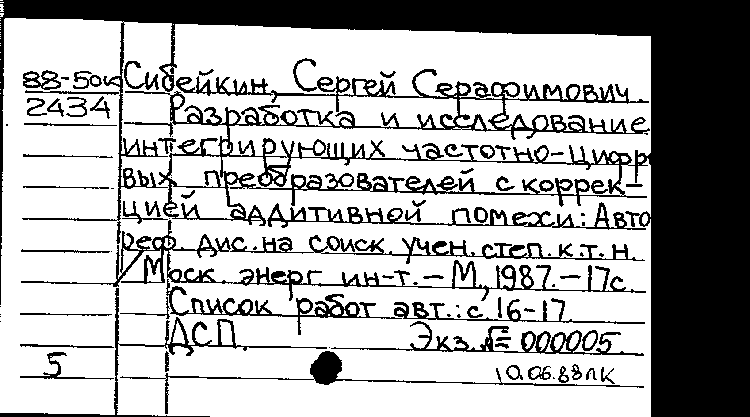 88-50к Сибейкин, Сергей Серафимович.
2434 Разработка и исследование
интегрирующих частотно-цифро
вых преобразователей с коррек-
цией аддитивной помехи: Авто
реф. дис. на соиск. учен. степ. к.т.н.
/Моск. энерг. ин-т. - М., 1987. - 17с.
Список работ авт.: с. 16-17.
ДСП. Экз. № 000005.
5
10.06.88лк